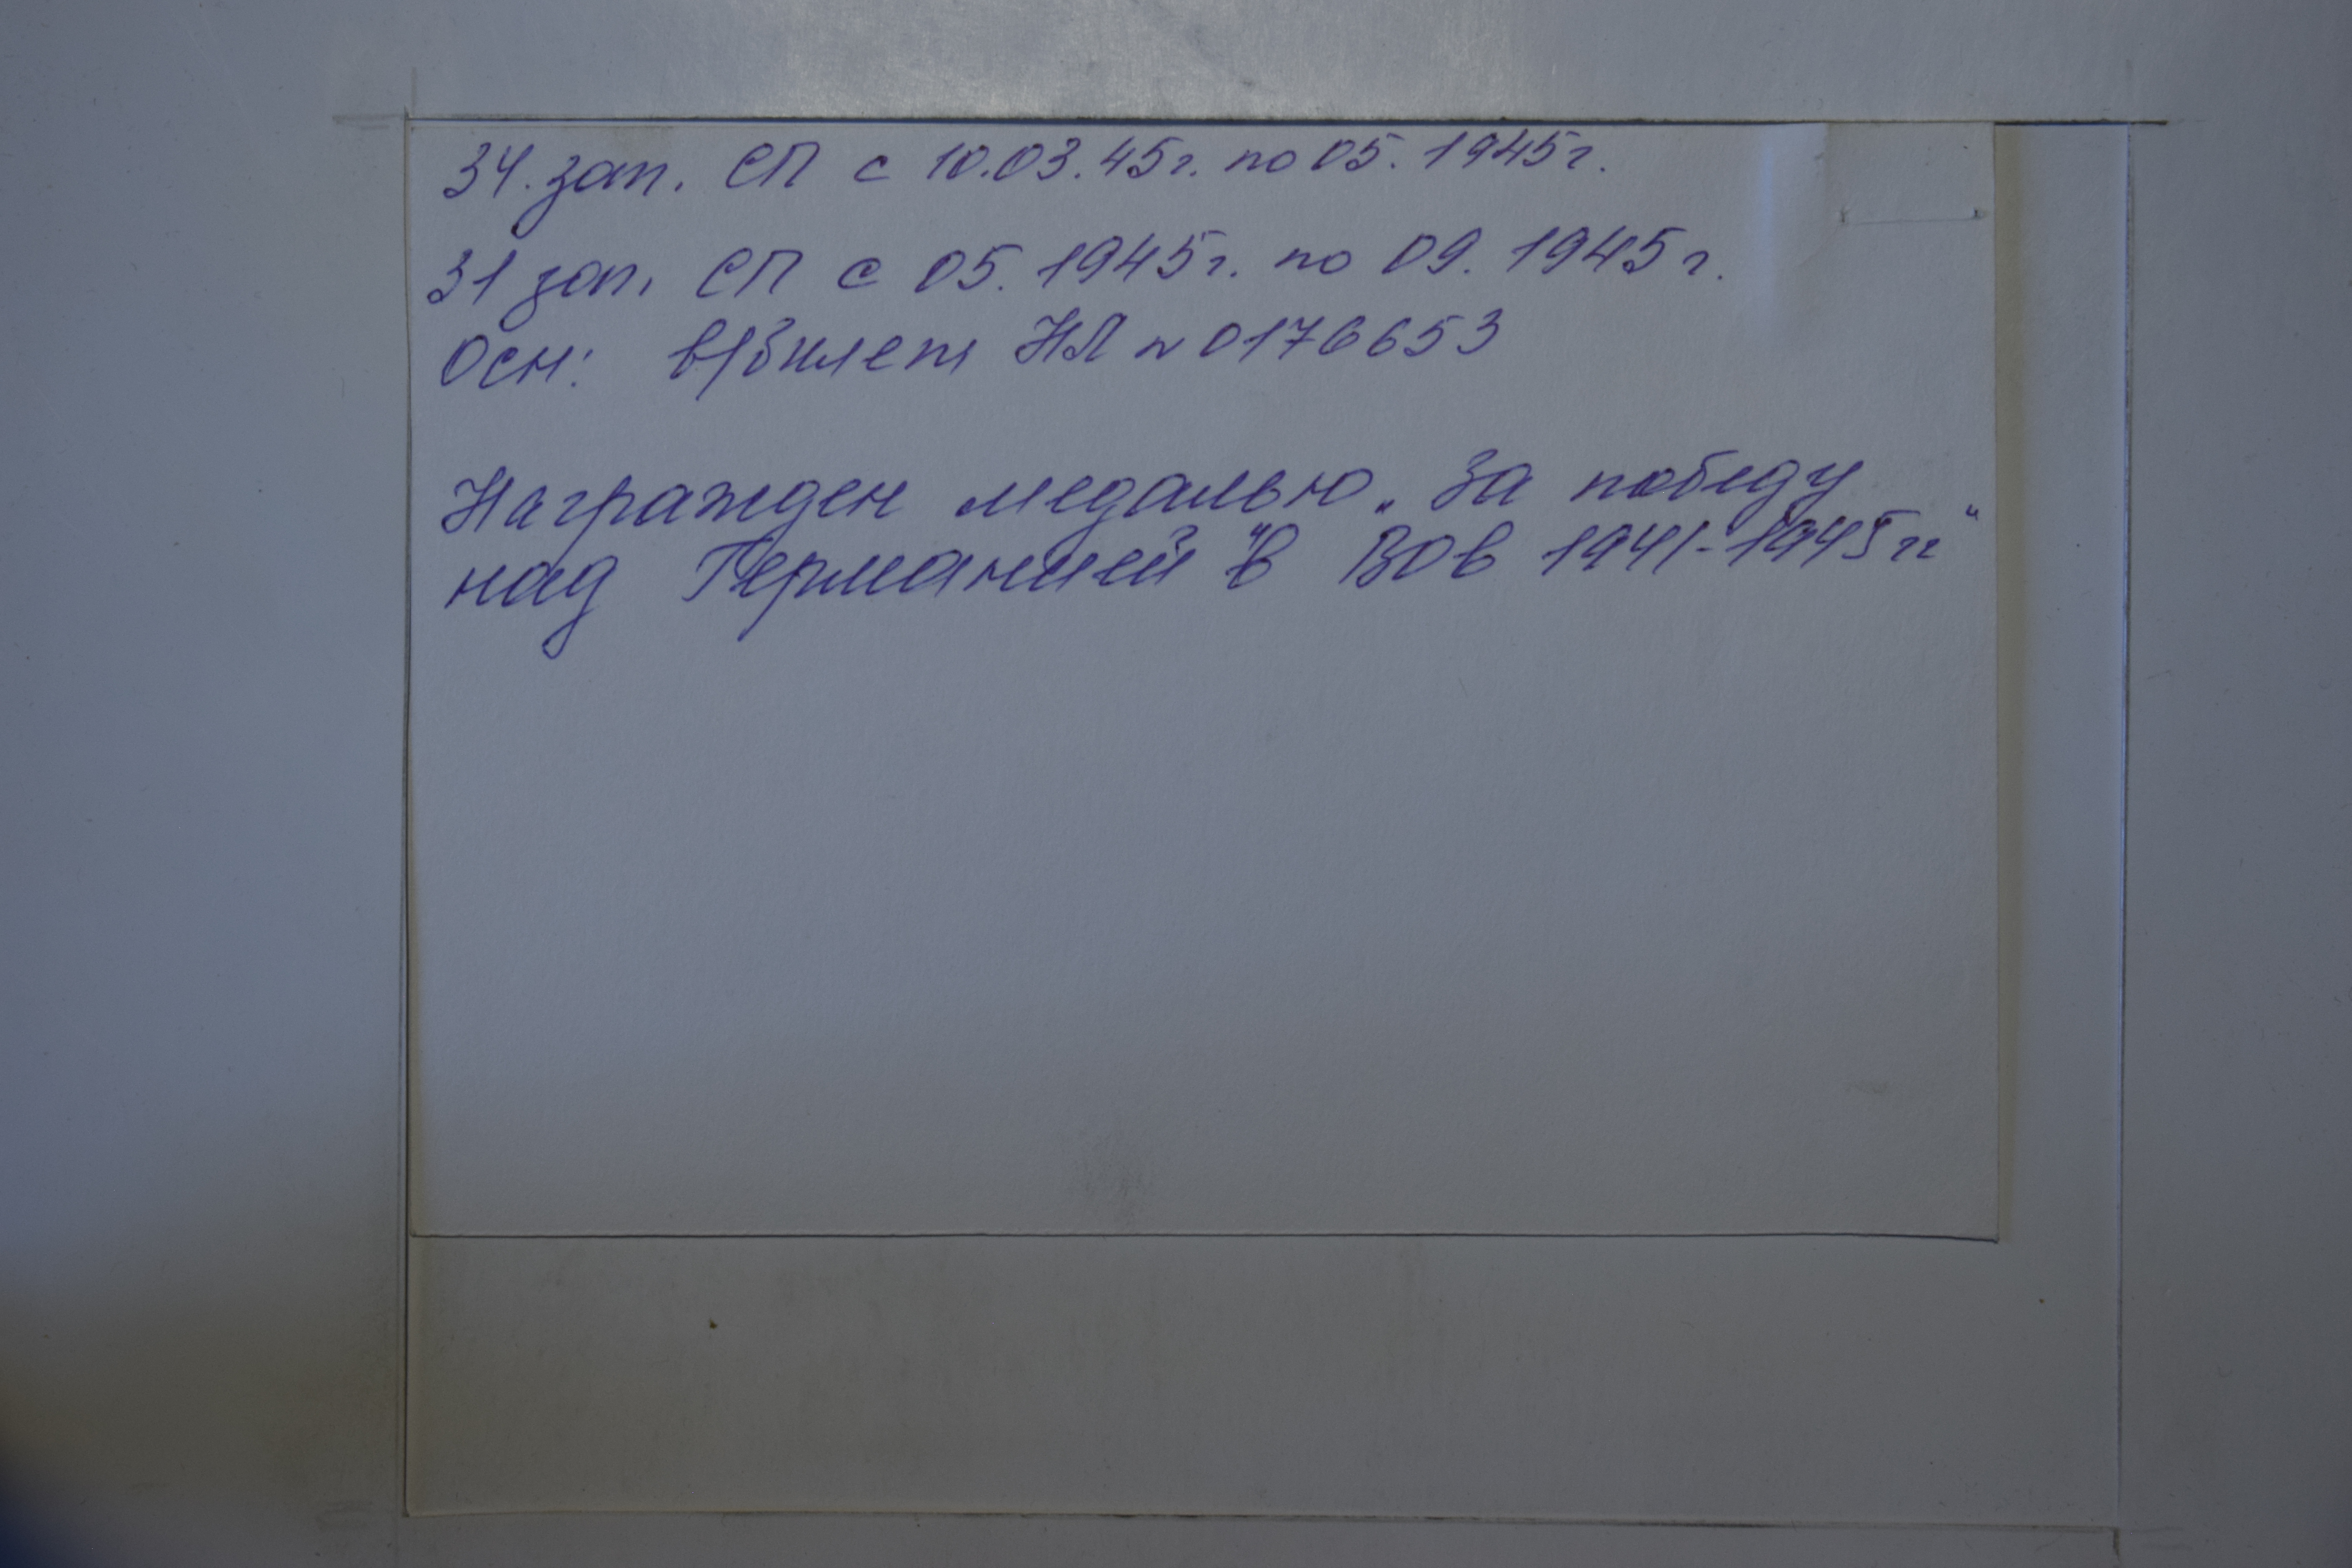 34. зап. СП с 10.03.45г. по 05. 1945г.
31 зап. СП с 05. 1945г. по 09. 1945г.
Осн: в/билет НЛ № 0176653
Награжден медалью „За победу
над Германией" в ВОв 1941-1945гг"